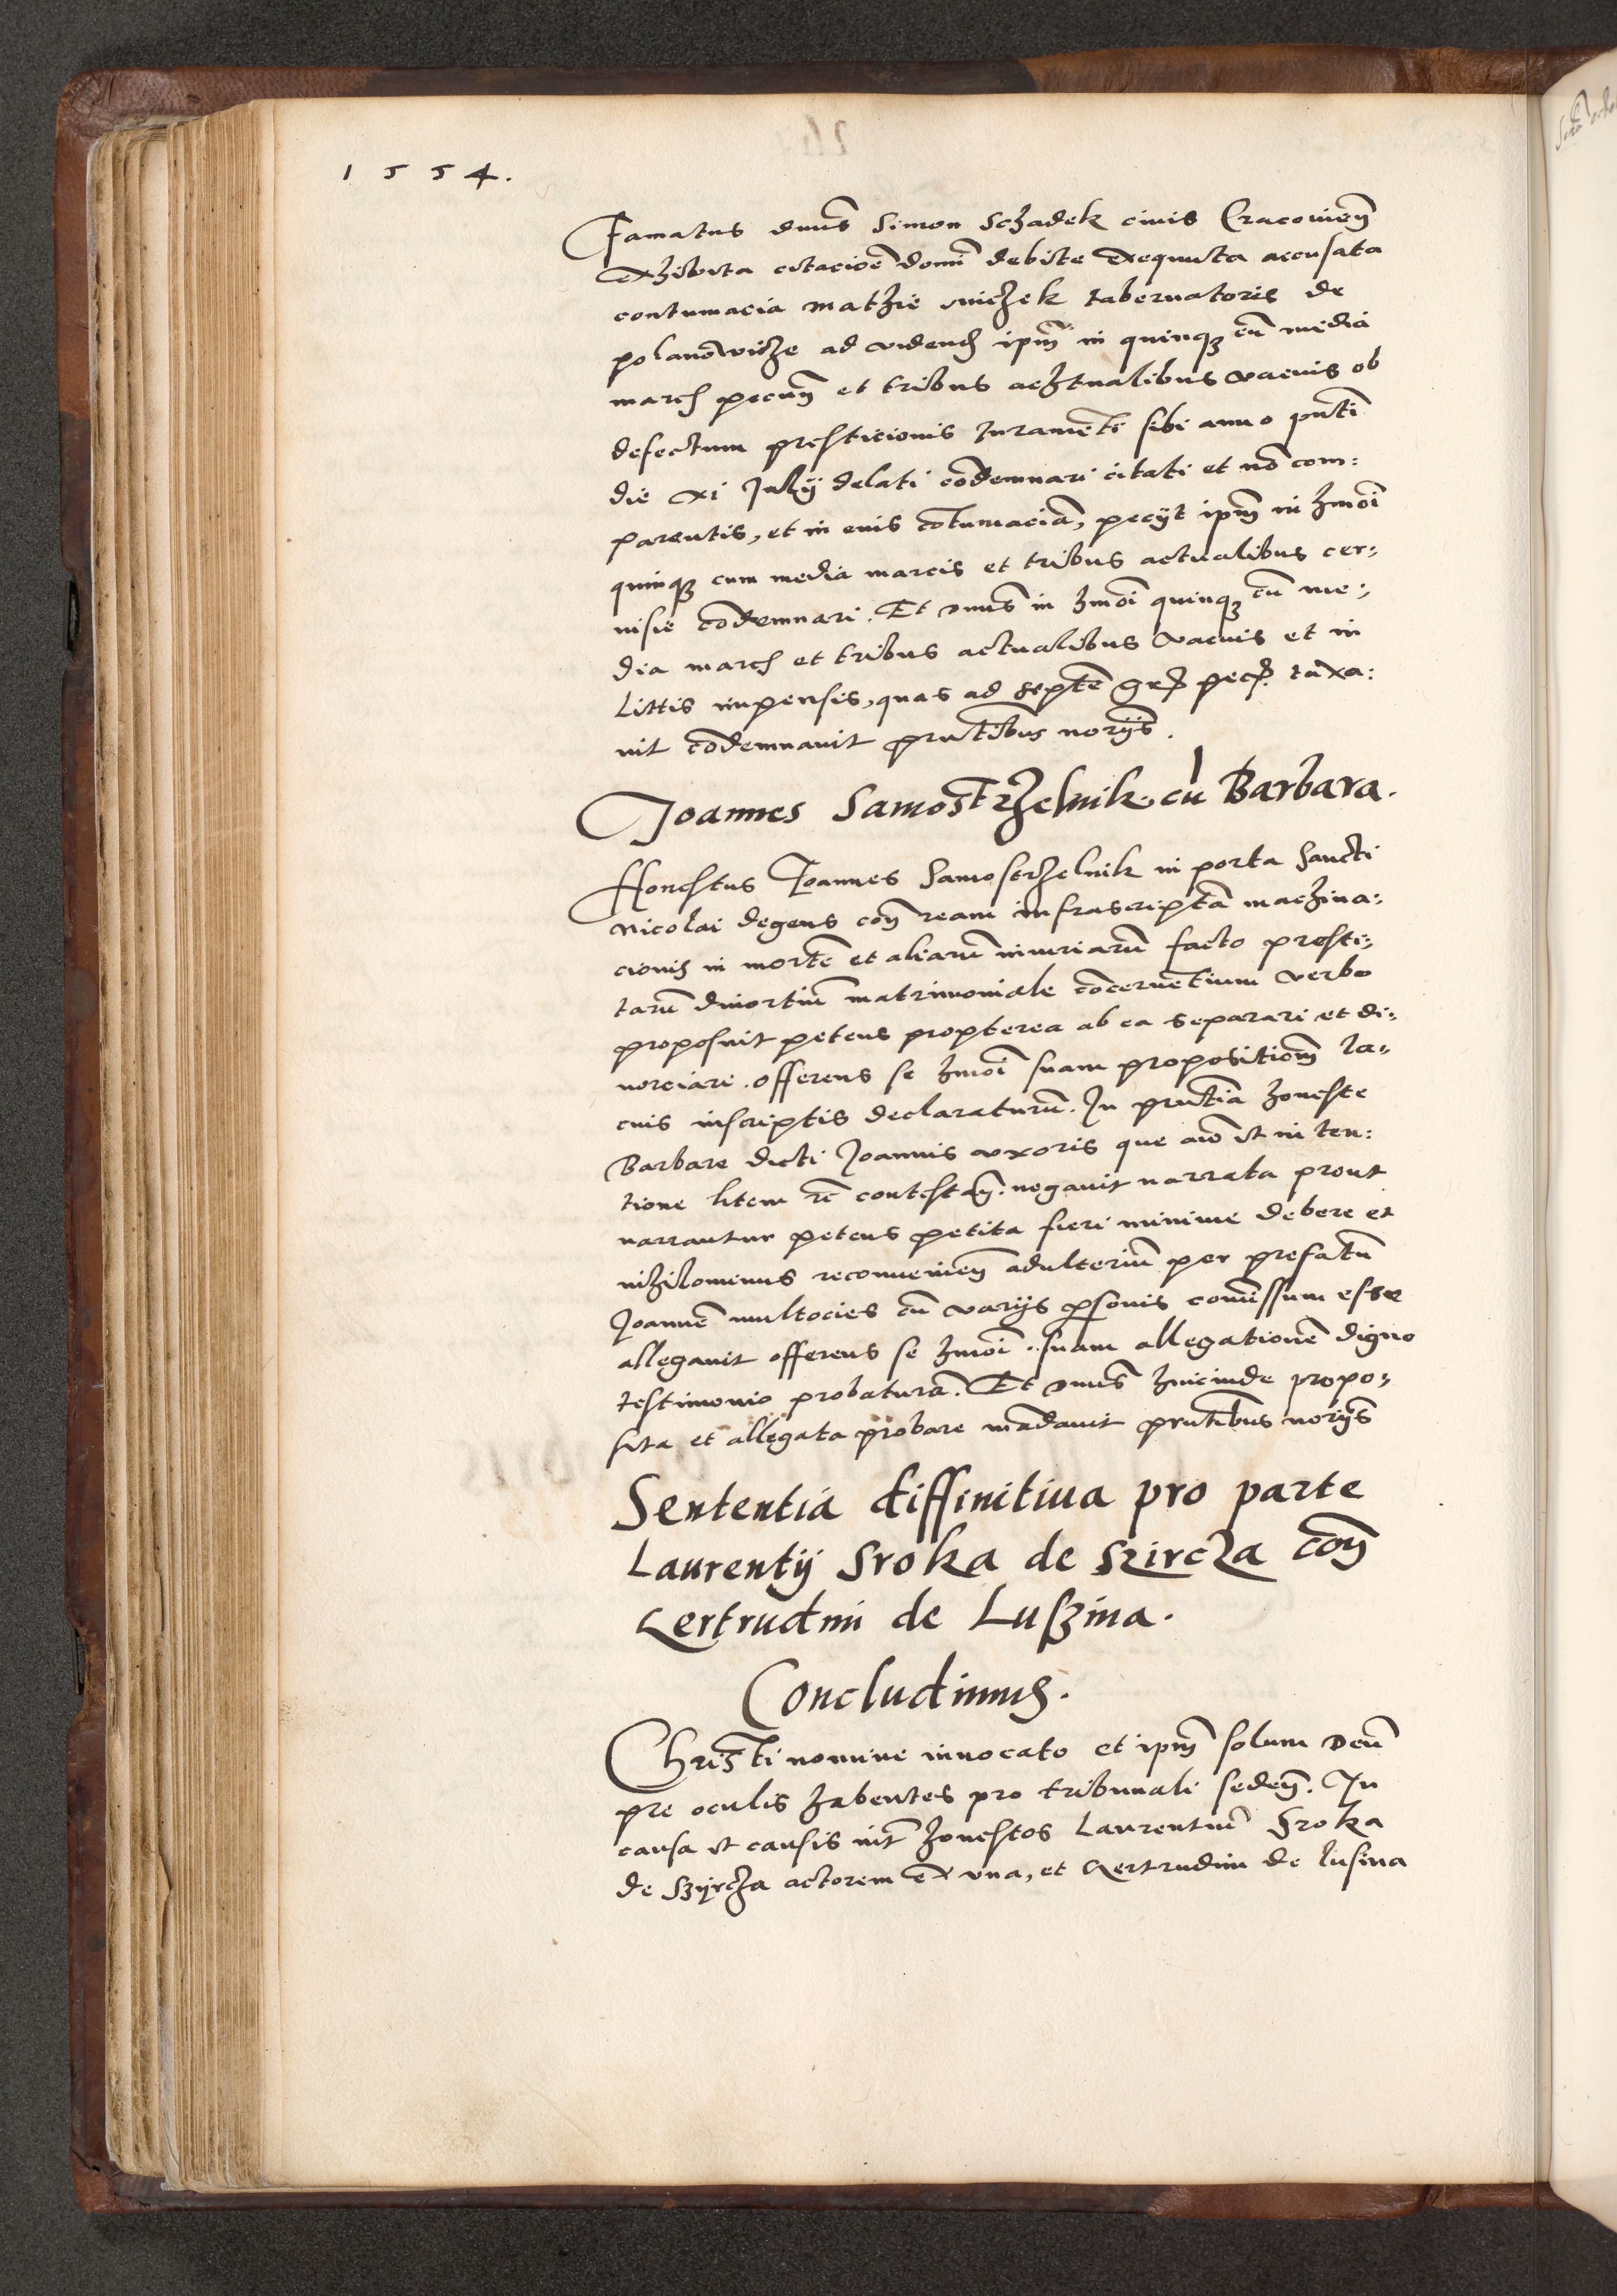 1554.
Famatus dnus Simon Schadek civis Cracovien
exhibita citacioē domī debite exequuta accusata
contumacia Mathie michek tabernatoris de
polanowicze ad videnđ ipm̄ in quinqꝫ cū media
march pecun̄ et tribus achtualibus vacuis ob
defectum prestitionis Iuramēti sibi anno pn̄ti
die xi Julij delati cōdemnari citati et nō com:
parentis, et in eius cōtumaciā, pecijt ipm̄ in hmōi
quinqꝫ cum media marcis et tribus actualibus cer:
uisie cōdemnari. Et dnus in hmōi quinqꝫ cū me:
dia march et tribus actualibus vacuis et in
littis impensis, quas ad septē gros pecp. taxa:
uit cōdemnauit pn̄tibus norijs.
Joannes Samostrzelnik cū Barbara.
Honestus Joannes Samostrzelnik in porta Sancti
Nicolai degens con̄ ream infrascriptā machina:
cionis in mortē et aliarū iniuriarū facto presti:
tarū diuortiū matrimoniale cōcernētium verbo
proposuit petens propterea ab ea separari et di:
uorciari. offerens se hmōi suam propositiom̄ la:
cius inscriptis declaraturū. In pn̄tia honeste
Barbare dicti Joannis vxoris que aīo et in ten:
tione litem rē contestan̄. negauit narrata prout
narrantur petens petita fieri minime debere et
nihilominus reconuenien̄ adulteriū per prefatū
Joannē multocies cū varijs psonis comissum esse
allegauit offerens se hmōi suam allegationē digno
testimonio probaturā. Et dnus hincinde propo:
sita et allegata probare mādauit pn̄tibus norijs
Sententia diffinitiua pro parte
Laurentij Sroka de Szircza con̄
Gertrudim de Luszina.
Concludimus.
Christi nomine inuocato et ipm̄ solum Deū
pre oculis habentes pro tribunali seden̄. In
causa et causis int̄ honestos Laurentiū Sroka
de Szyrcza actorem ex vna, et Gertrudim de lusina